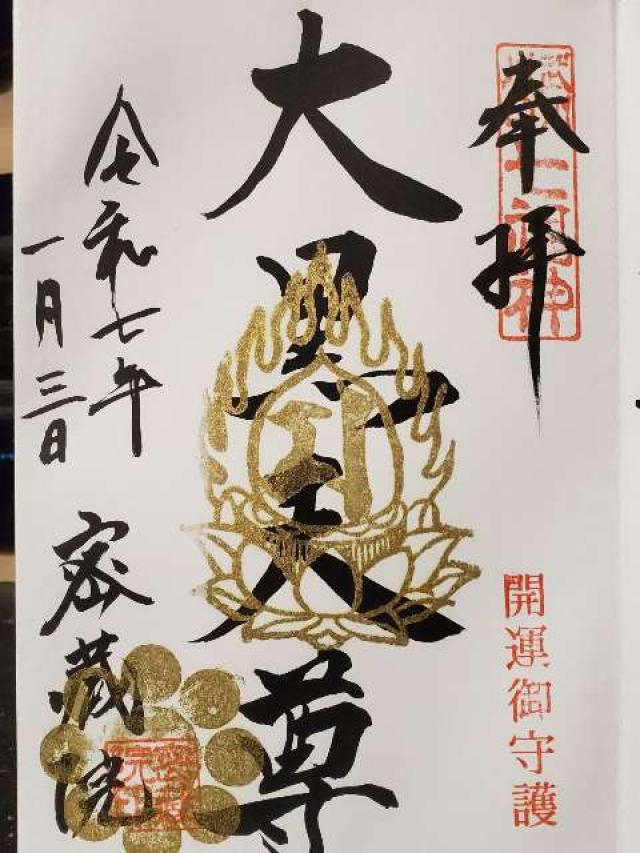 奉拝
開運御守護
大黒天尊
令和七年
一月三日
密蔵院